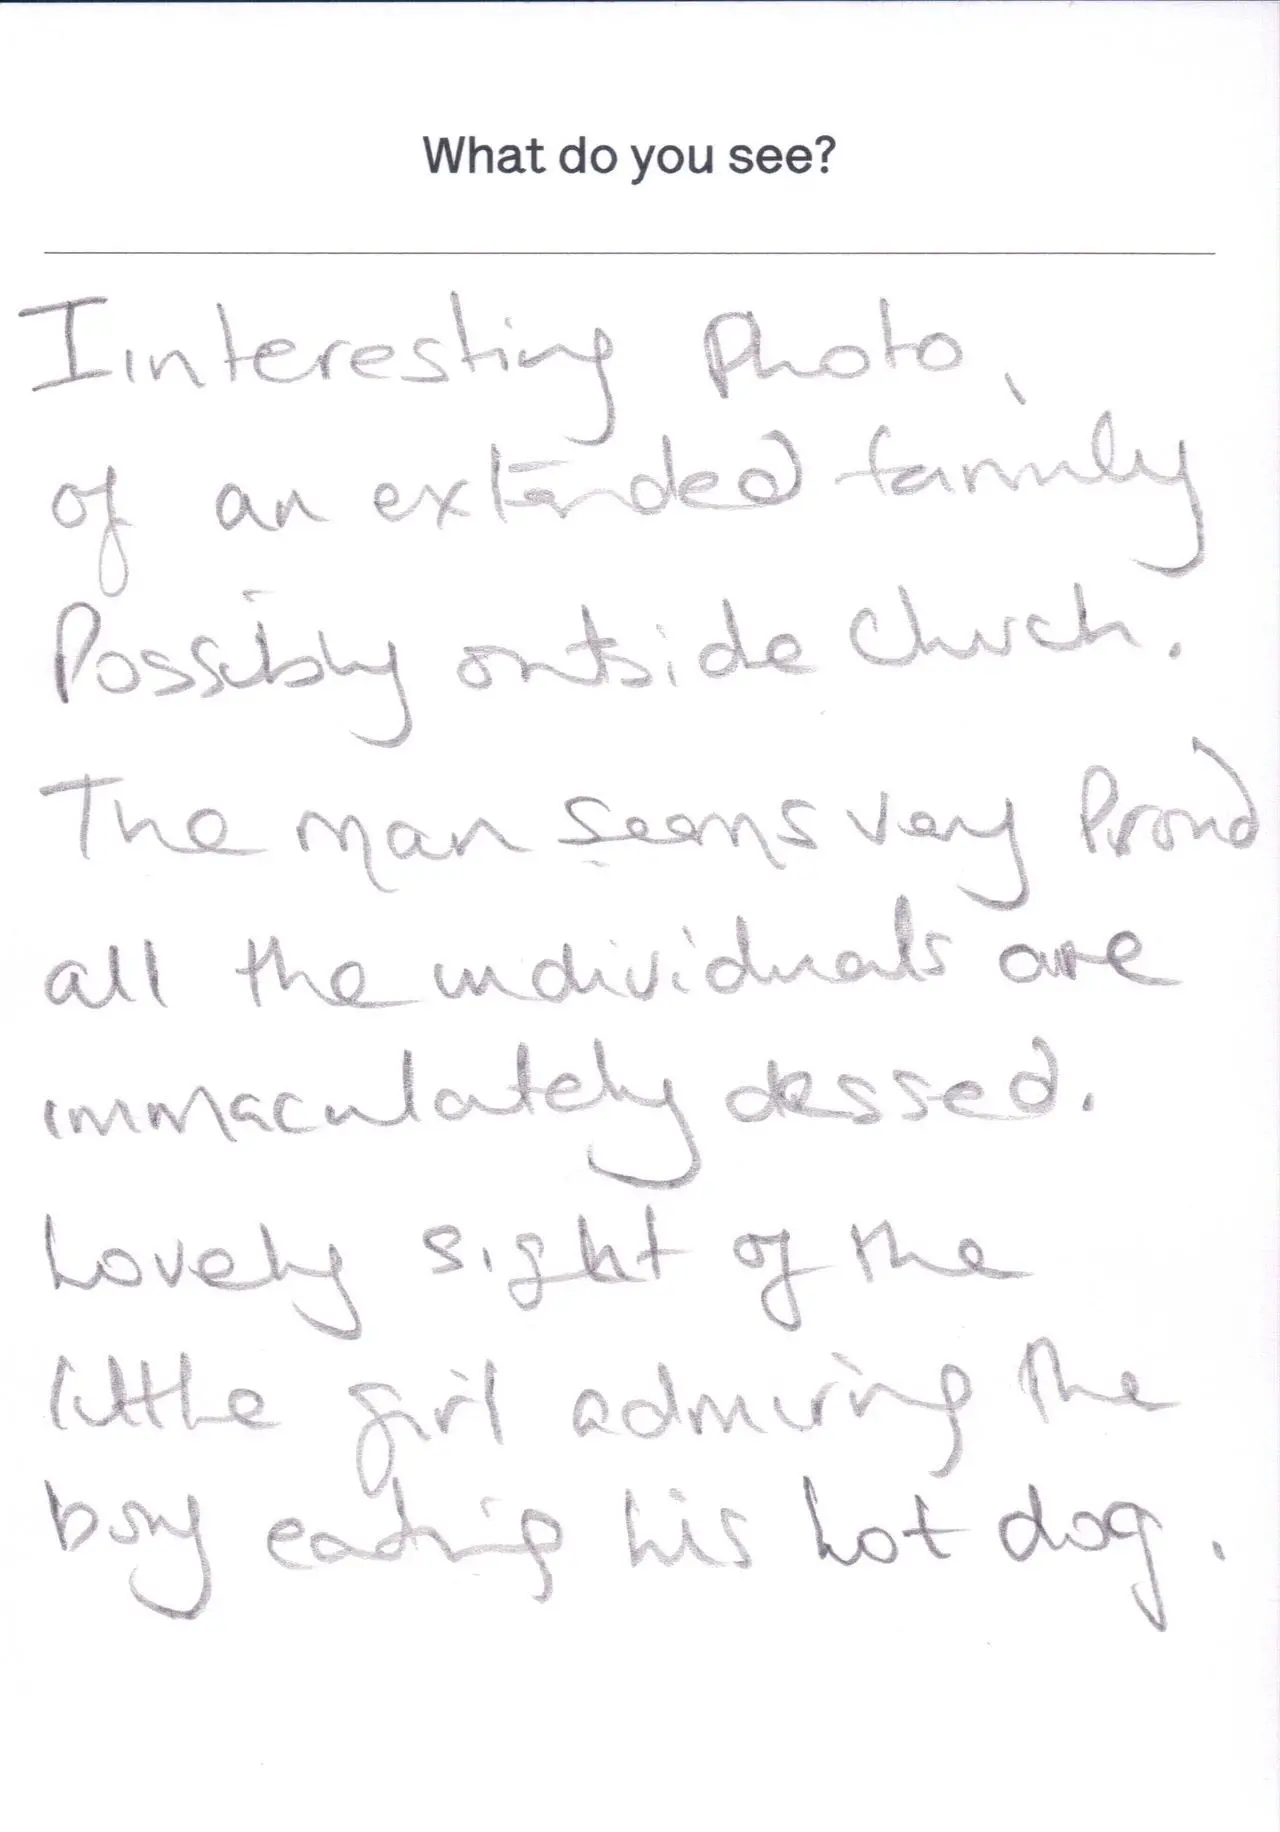 What do you see?
Iinteresting Photo,
of an extended family
Possibly outside Church.
The man seems very Proud
all the individuals are
immaculately dessed.
Lovely sight of the
little girl admiring the
boy eating his hot dog.